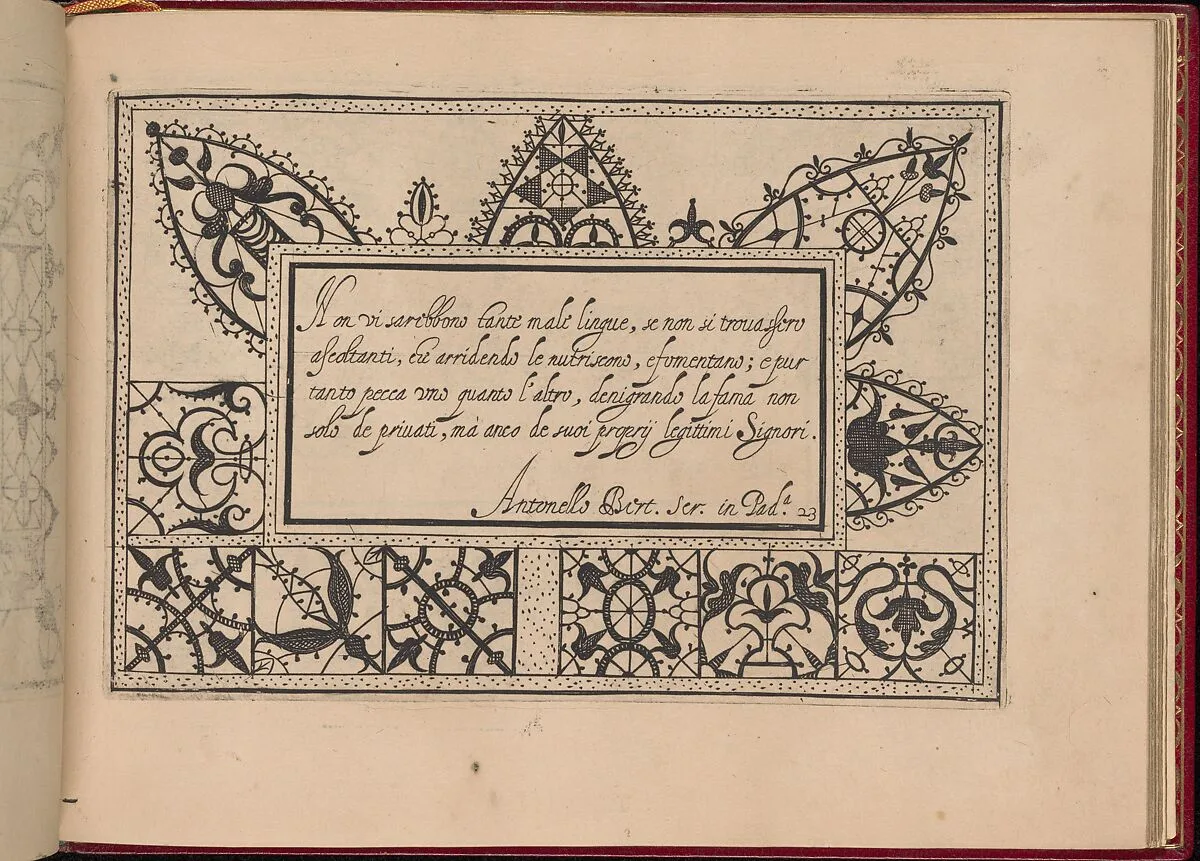 Non vi sarebbono tante male lingue, se non si trouassero
ascoltanti, che arridendo le nutriscono, e fomentano; e pur
tanto pecca vno quanto l'altro, denigrando la fama non
solo de priuati, mà anco de suoi proprij legittimi Signori.
Antonello Bert. Ser. in Pad.ª 23